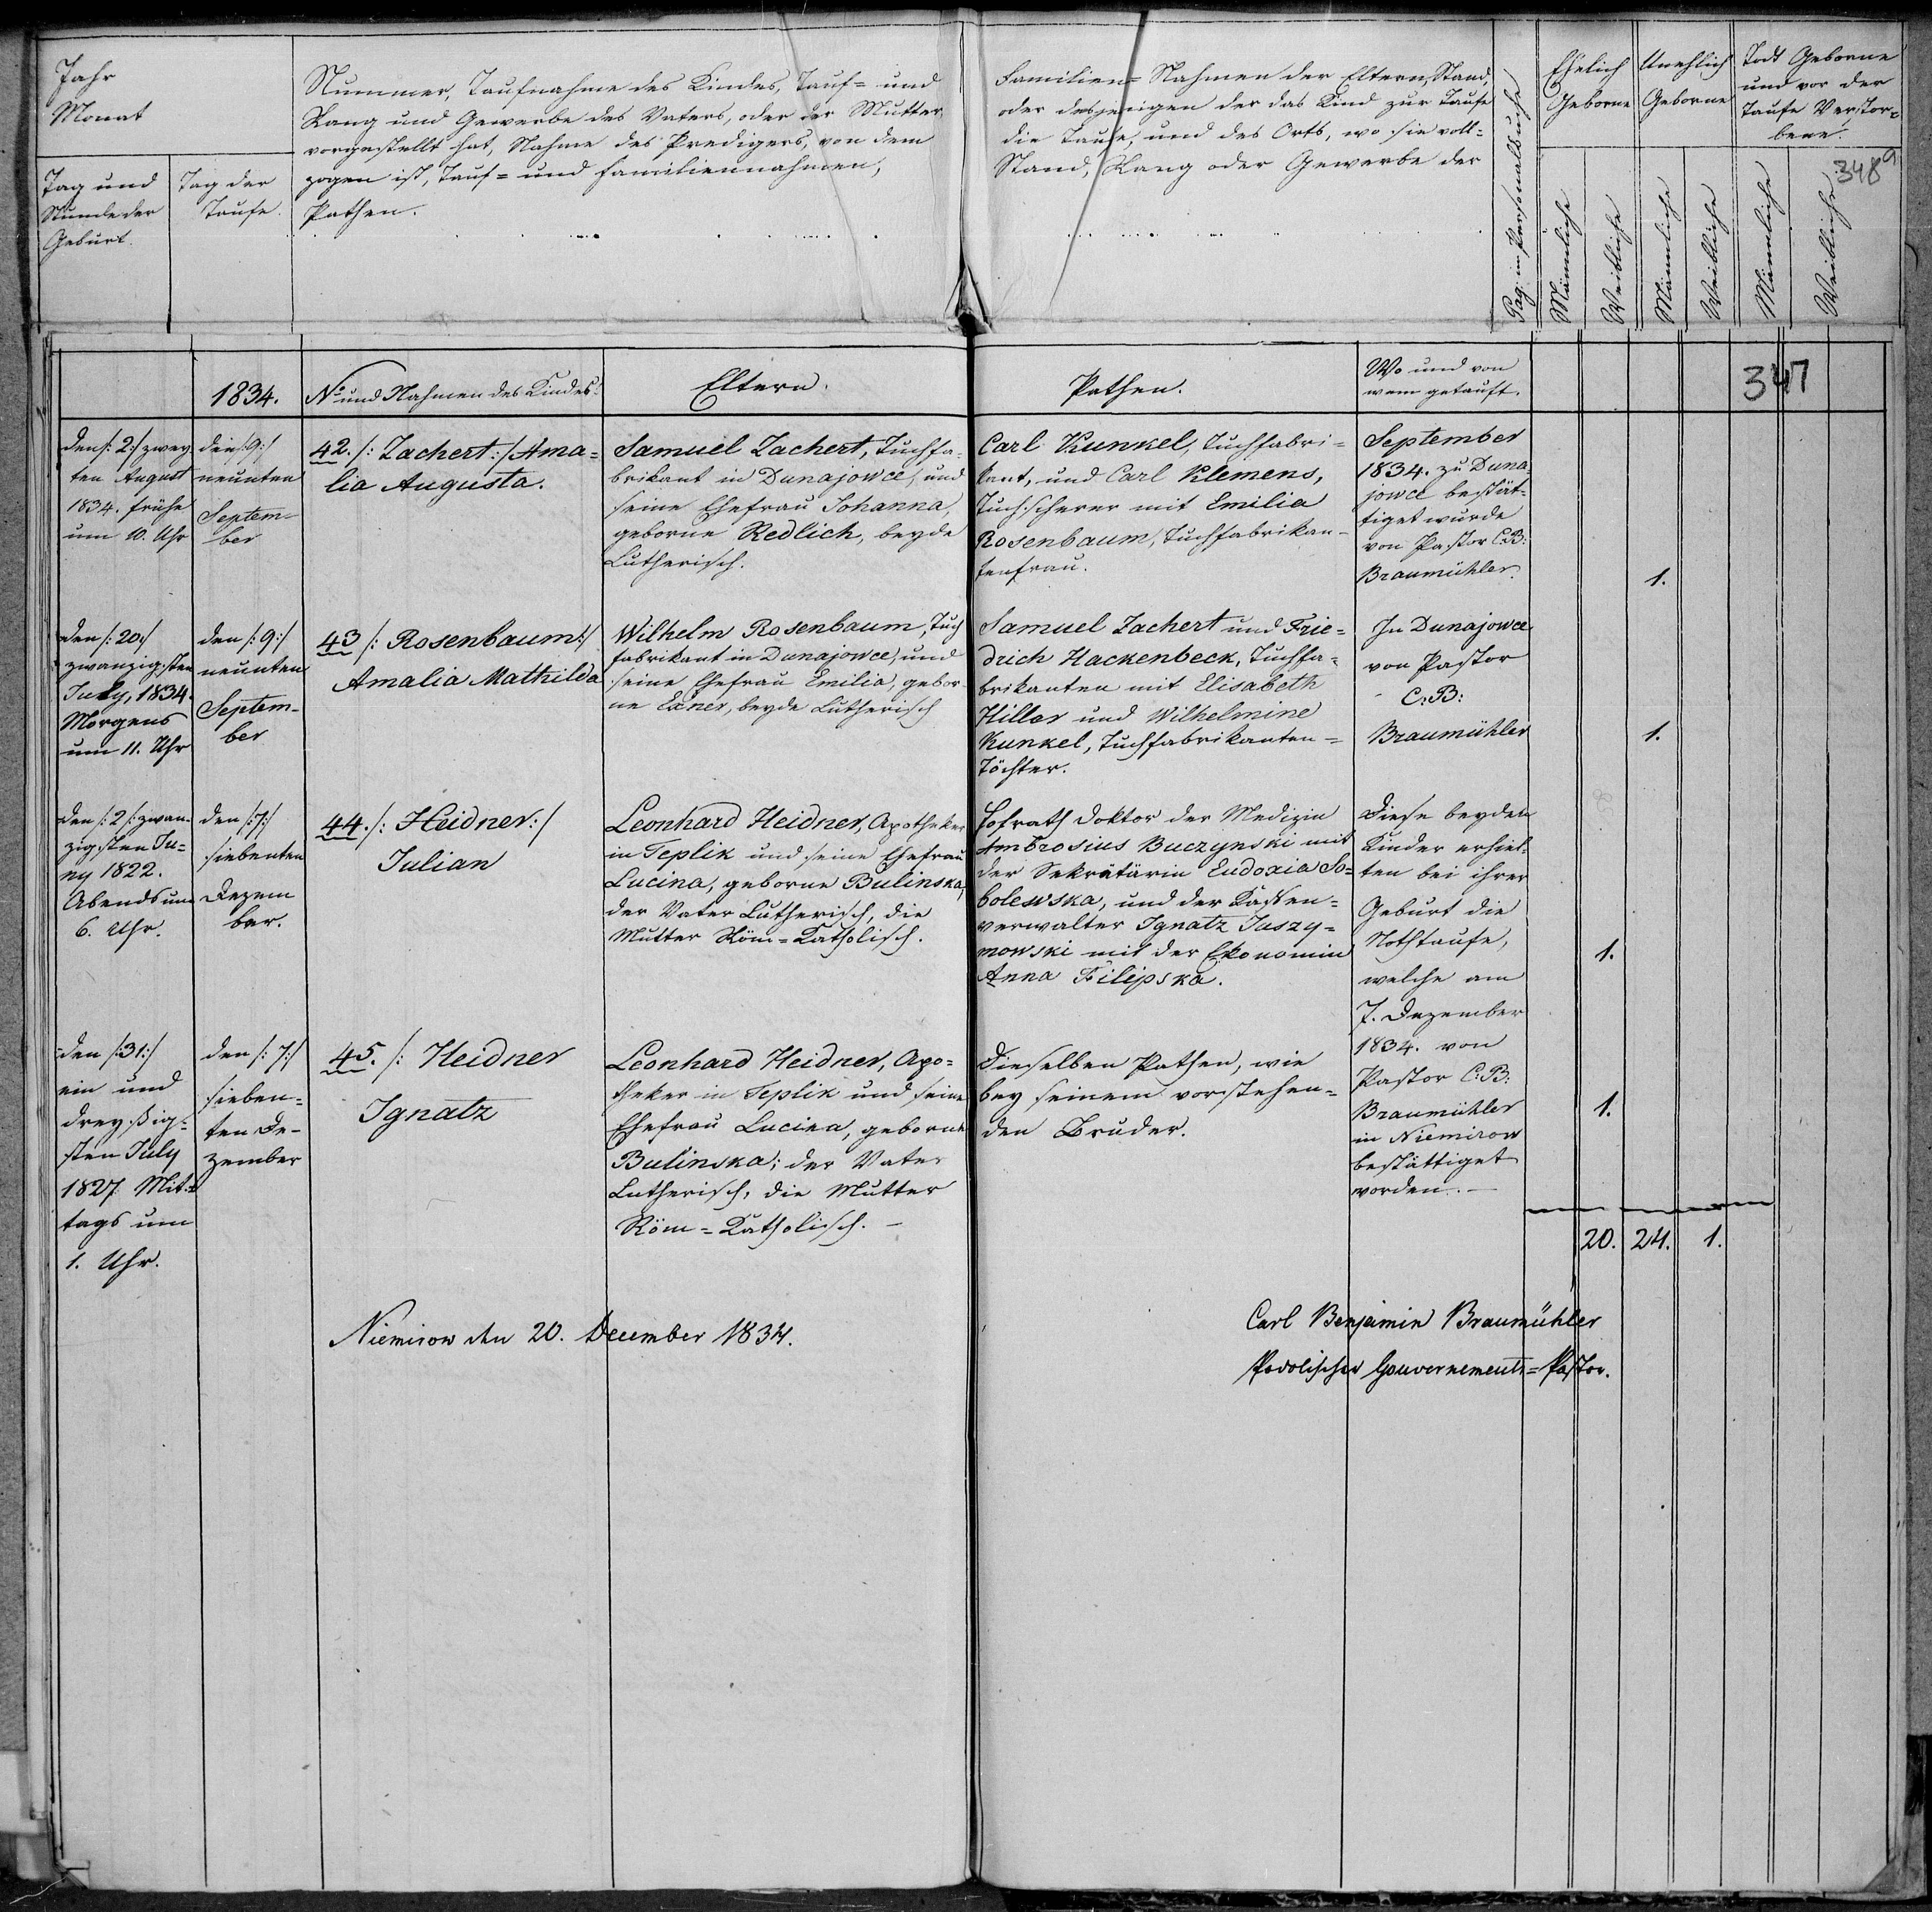 Jahr
Monat
Tag und
Stunde der
Geburt.
Tag der
Taufe.
Nummer, Taufnahme des Kindes, Tauf= und
Rang und Gewerbe des Vaters, oder der Mutter
vorgestellt hat, Nahme des Predigers, von dem
zogen ist, Tauf= und Familiennahmen,
Pathen.
Familien=Nahmen der Eltern, Stand,
oder desjenigen der das Kind zur Taufe
die Taufe, und des Orts, wo sie voll=
Stand, Rang oder Gewerbe der
Pag: im Personalbuche
Ehelich
Geborne
Unehlich
Geborne
Todt Geborne
und vor der
Taufe Verstor=
bene.
348a
Männliche
Weibliche
Männliche
Weibliche
Männliche
Weibliche
1834.
No und Nahmen des Kindes
Eltern.
Pathen.
Wo und von
wem getauft.
347
den /:2:/ zwey
ten August
1834. frühe
um 10. Uhr
den /:9:/
neunten
Septem=
ber
42. /: Zachert:/ Ama=
lia Augusta.
Samuel Zachert, Tuchfa=
brikant in Dunajowce, und
seine Ehefrau Johanna,
geborne Redlich, beyde
Lutherisch.
Carl Kunkel, Tuchfabri=
kant, und Carl Klemens,
Tuchscherer mit Emilia
Rosenbaum, Tuchfabrikan=
tenfrau.
September
1834. zu Duna
jowce bestät=
tiget wurde
von Pastor C:B:
Braumühler.
1.
den /:20:/
zwanzigsten
July, 1834.
Morgens
um 11. Uhr
den /:9:/
neunten
Septem=
ber
43 /: Rosenbaum:/
Amalia Mathilda
Wilhelm Rosenbaum, Tuch
fabrikant in Dunajowce, und
seine Ehefrau Emilia, gebor=
ne Exner, beyde Lutherisch
Samuel Zachert und Frie=
drich Hackenbeck, Tuchfa=
brikanten mit Elisabeth
Hiller und Wilhelmine
Kunkel, Tuchfabrikanten=
Töchter.
In Dunajowce
von Pastor
C:B:
Braumühler
1.
den /:2/: zwan=
zigsten Ju=
ny 1822.
Abends um
6. Uhr.
den /:7:/
siebenten
Dezem
ber.
44. /: Heidner:/
Julian
Leonhard Heidner, Apotheker
in Teplik und seine Ehefrau
Lucina, geborne Bulinska,
der Vater Lutherisch, die
Mutter Röm=Katholisch.
Hofrath Doktor der Medizin
Ambrosius Buczynski mit
der Sekrätärin Eudoxia So=
bolewska, und der Kassen=
verwalter Ignatz Juszy=
mowski mit der Ekonomin
Anna Filipska.
Diese beyden
Kinder erhiel=
ten bei ihrer
Geburt die
Nothtaufe,
welche am
7. Dezember
1834. von
Pastor C:B:
Braumühler
in Niemirow
bestättiget
worden. —
1.
den /:31:/
ein und
dreyßig=
sten July
1827 Mit=
tags um
1. Uhr.
den /:7:/
sieben=
ten De=
zember
45. /: Heidner
Ignatz
Leonhard Heidner, Apo=
theker in Teplik und seine
Ehefrau Lucina, geborne
Bulinska; der Vater
Lutherisch, die Mutter
Röm=Katholisch. —
Dieselben Pathen, wie
bey seinem vorstehen=
den Bruder.
1.
20. 24. 1.
Niemirow den 20. December 1834.
Carl Benjamin Braumühler
Podolischer Gouvernements=Pastor.